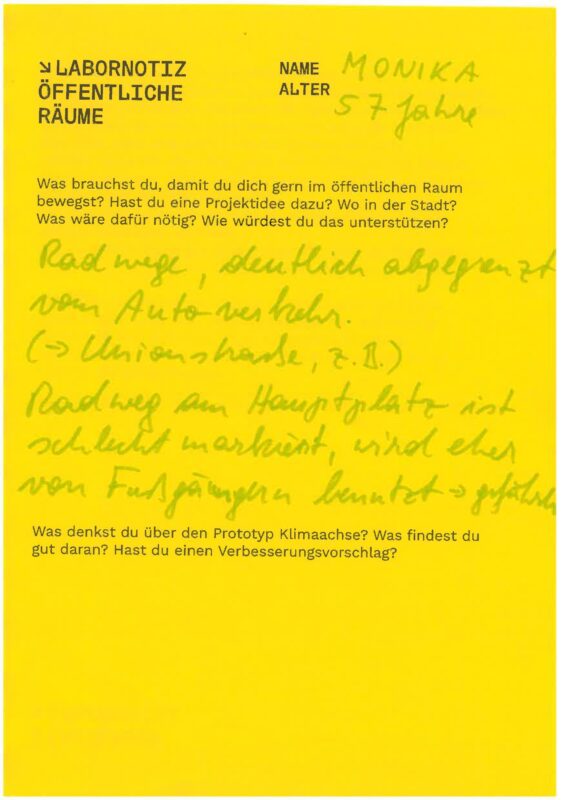 ↘ LABORNOTIZ
ÖFFENTLICHE
RÄUME
NAME MONIKA
ALTER 57 Jahre
Was brauchst du, damit du dich gern im öffentlichen Raum
bewegst? Hast du eine Projektidee dazu? Wo in der Stadt?
Was wäre dafür nötig? Wie würdest du das unterstützen?
Radwege, deutlich abgegrenzt
vom Autoverkehr.
(→ Unionstraße, z.B.)
Radweg am Hauptplatz ist
schlecht markiert, wird eher
von Fußgängern benutzt →
Was denkst du über den Prototyp Klimaachse? Was findest du
gut daran? Hast du einen Verbesserungsvorschlag?